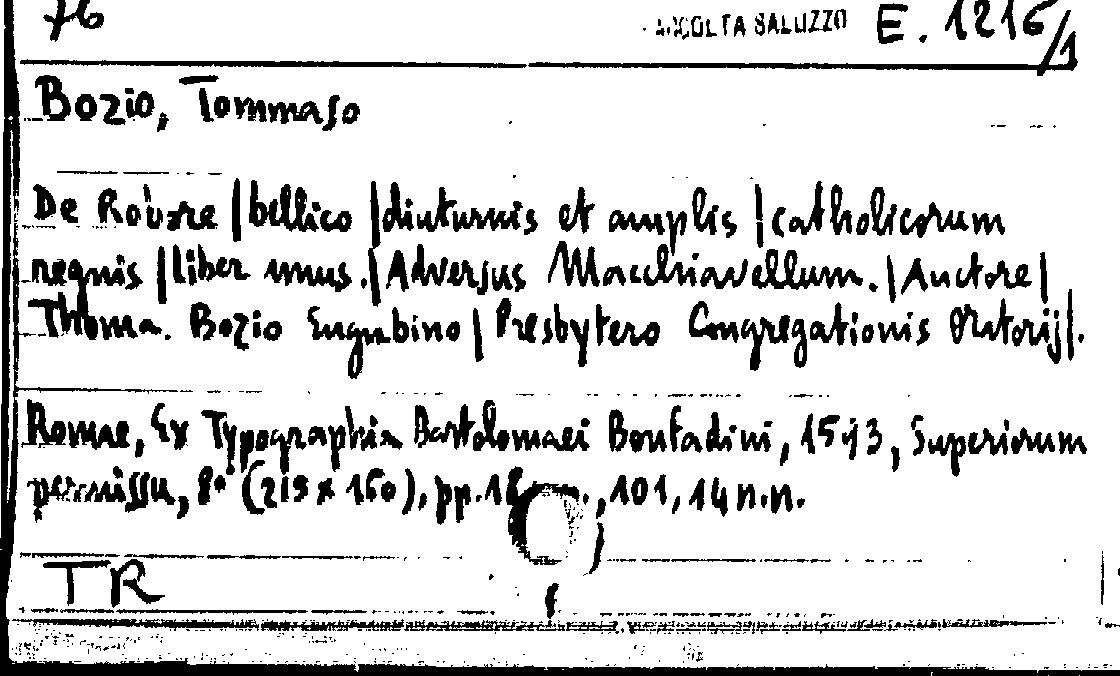 76
RACCOLTA SALUZZO E. 1216/1
Bozio, Tommaso
De Robore | bellico | diuturnis et amplis | catholicorum
regnis | liber unus. | Adversus Macchiavellum. | Auctore |
Thoma. Bozio Eugubino | Presbytero Congregationis Oratorij |.
Romae, Ex Typographia Bartolomaei Bonfadini, 1593, Superiorum
permissu, 8° (219 x 160), pp. 18 , 101, 14 n.n.
TR